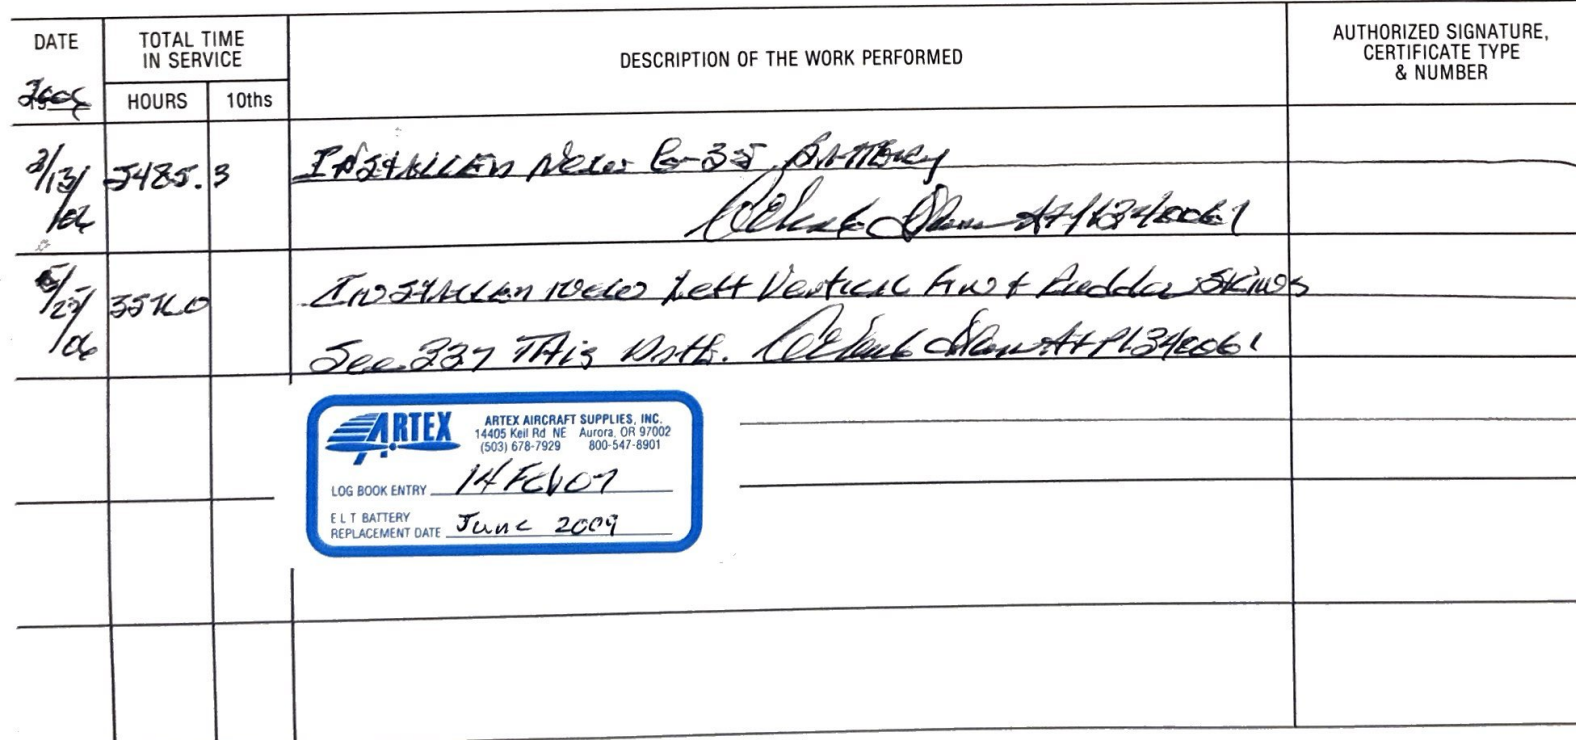 DATE
TOTAL TIME
IN SERVICE
DESCRIPTION OF THE WORK PERFORMED
AUTHORIZED SIGNATURE,
CERTIFICATE TYPE
& NUMBER
HOURS
10ths
3/13/06 3485.3 INSTALLED New G-35 BATTERY
Installed new Left Vertical Fin & Rudder Skins
See 337 This Date.
ARTEX
ARTEX AIRCRAFT SUPPLIES, INC.
14405 Keil Rd NE Aurora, OR 97002
(503) 678-7929 800-547-8901
LOG BOOK ENTRY 14 Feb 07
E L T BATTERY
REPLACEMENT DATE June 2009